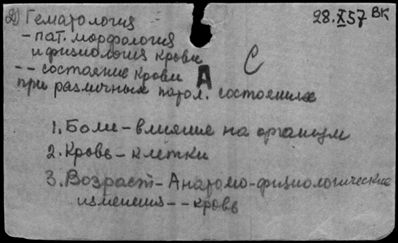 2) Гематология
28.X57 ВК
- пат. морфология
и физиология крови
- - состояние крови А С
при различных патол. состояниях
1. Боли - влияние на организм
2. Кровь - клетки
3. Возраст - Анатомо-физиологические
изменения - - кровь